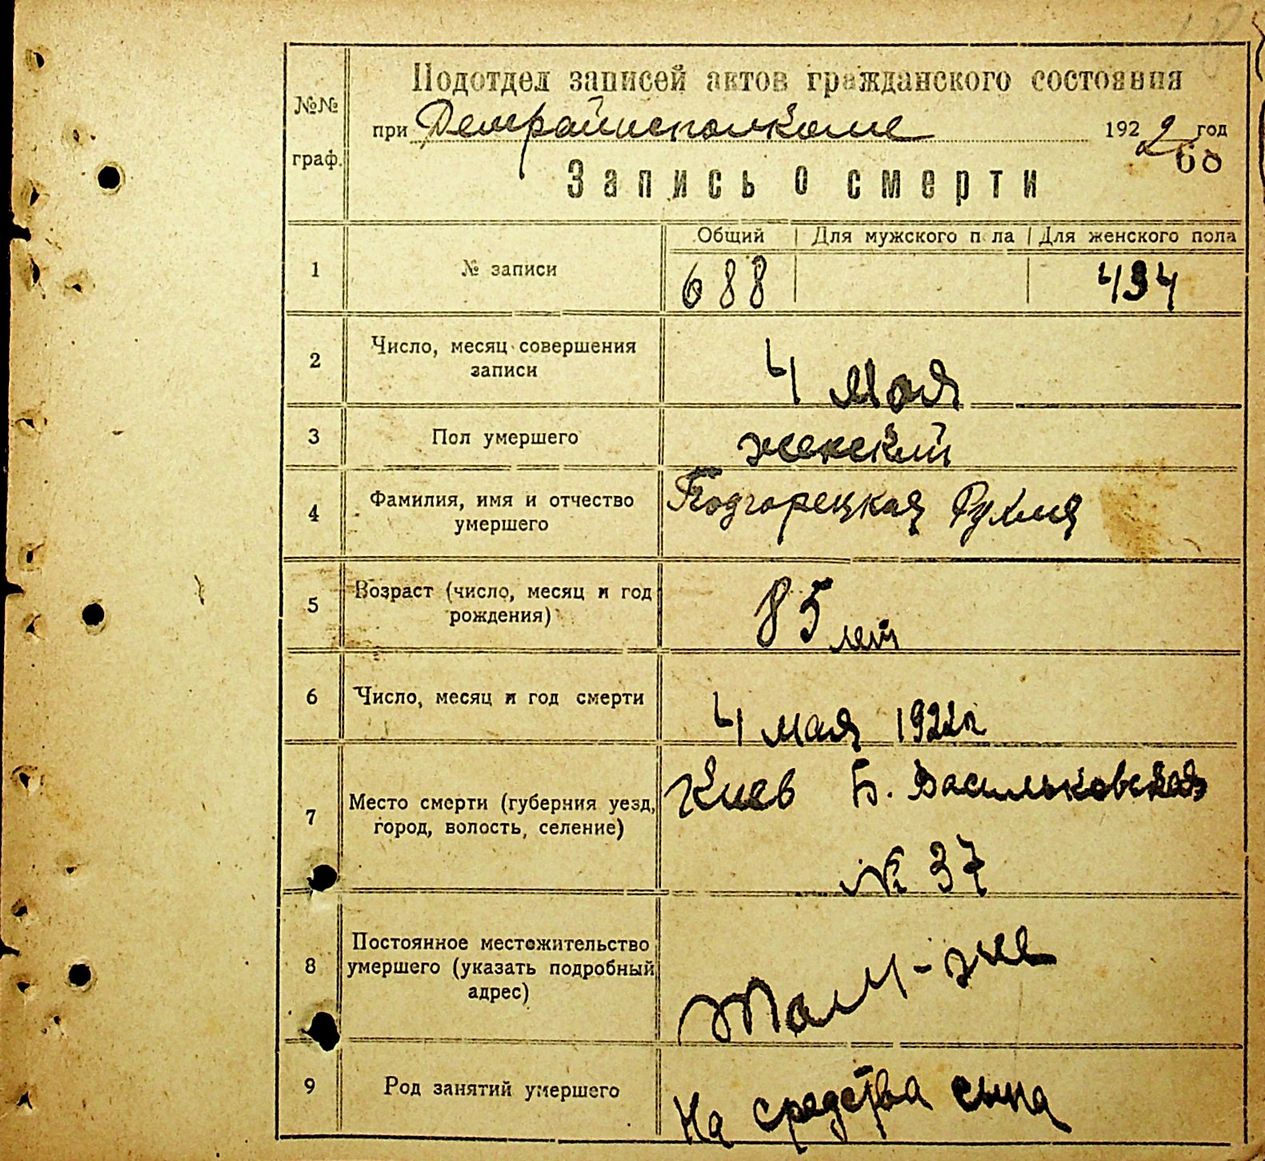 №№ граф.
Подотдел записей актов гражданского состояния
при 1922 год
60
Запись о смерти
Общий | Для мужского п ла | Для женского пола
1 № записи 688 434
2 Число, месяц совершения записи 4 мая
3 Пол умершего женский
4 Фамилия, имя и отчество умершего Подгорецкая Рухля
5 Возраст (число, месяц и год рождения) 85 лет
6 Число, месяц и год смерти 4 мая 1922г
7 Место смерти (губерния уезд, город, волость, селение) Киев Б. Васильковская
№ 37
8 Постоянное местожительство умершего (указать подробный адрес) Там-же
9 Род занятий умершего На средства сына